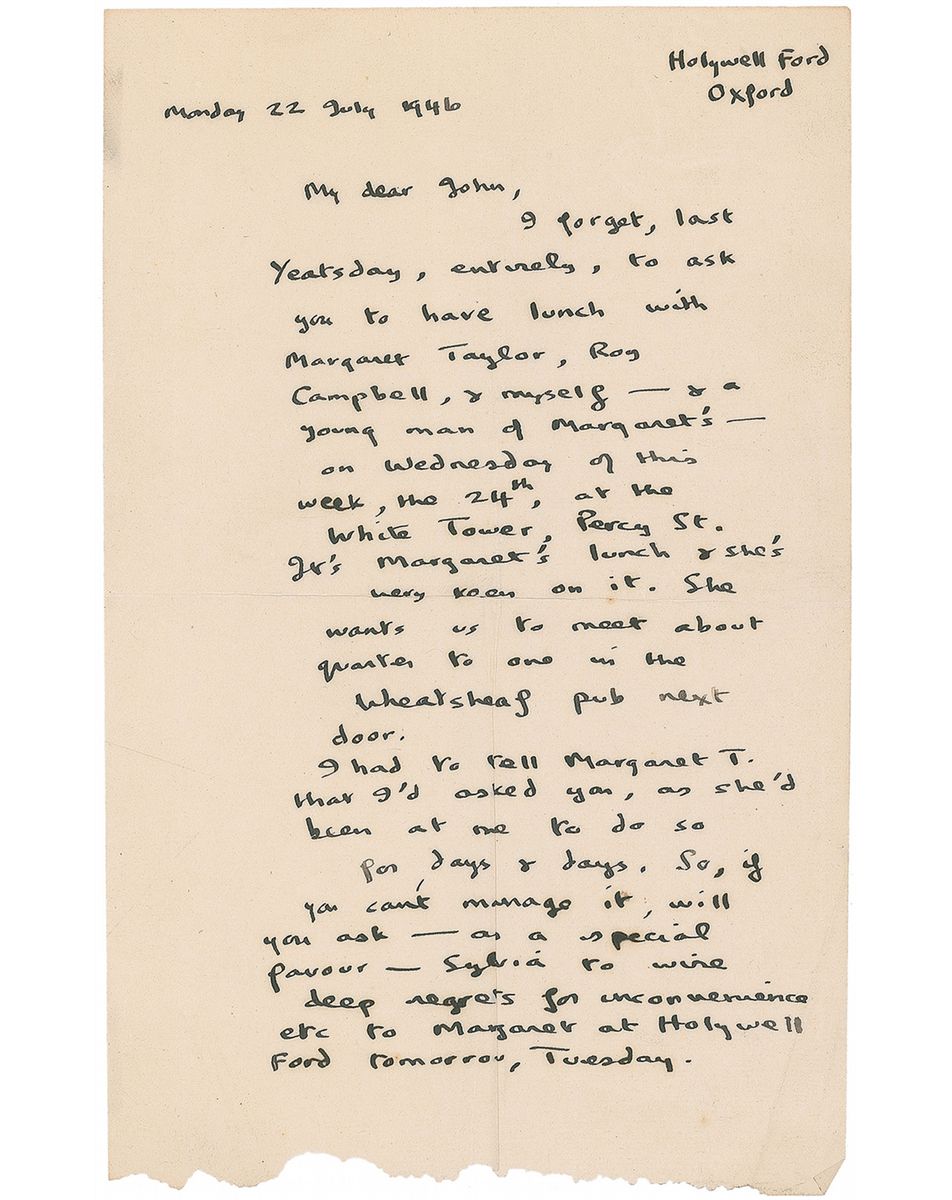 Holywell Ford
Oxford
Monday 22 July 1946
My dear John,
I forget, last
Yeatsday, entirely, to ask
you to have lunch with
Margaret Taylor, Roy
Campbell, & myself — & a
young man of Margaret's —
on Wednesday of this
week, the 24th, at the
White Tower, Percy St.
It's Margaret's lunch & she's
very keen on it. She
wants us to meet about
quarter to one in the
Wheatsheaf pub next
door.
I had to tell Margaret T.
that I'd asked you, as she'd
been at me to do so
for days & days. So, if
you can't manage it, will
you ask — as a special
favour — Sylvia to wire
deep regrets for inconvenience
etc to Margaret at Holywell
Ford tomorrow, Tuesday.